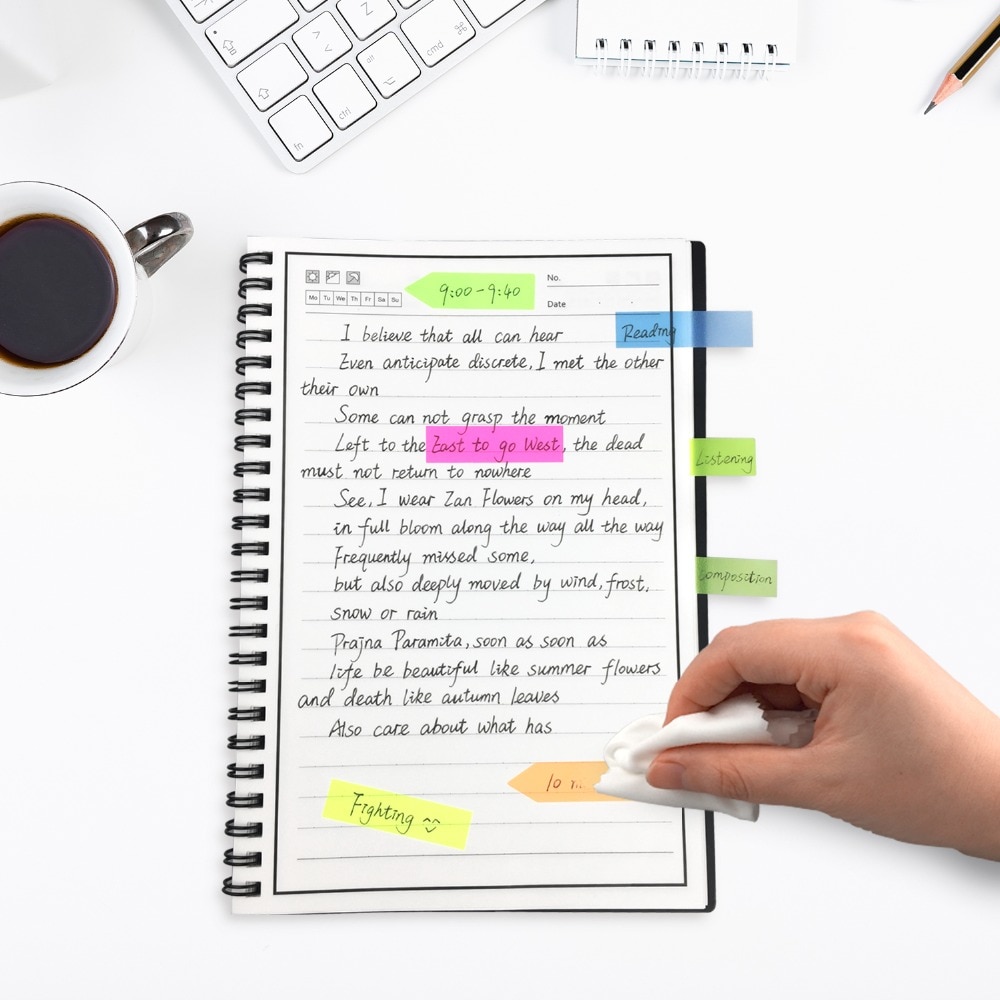 Z
alt
cmd
ctrl
fn
9:00-9:40
No.
Mo Tu We Th Fr Sa Su
Date
Reading
I believe that all can hear
Even anticipate discrete, I met the other
their own
Some can not grasp the moment
Left to the East to go West, the dead
must not return to nowhere
Listening
See, I wear Zan Flowers on my head,
in full bloom along the way all the way
Frequently missed some,
but also deeply moved by wind, frost,
Composition
snow or rain
Prajna Paramita, soon as soon as
life be beautiful like summer flowers
and death like autumn leaves
Also care about what has
10
Fighting